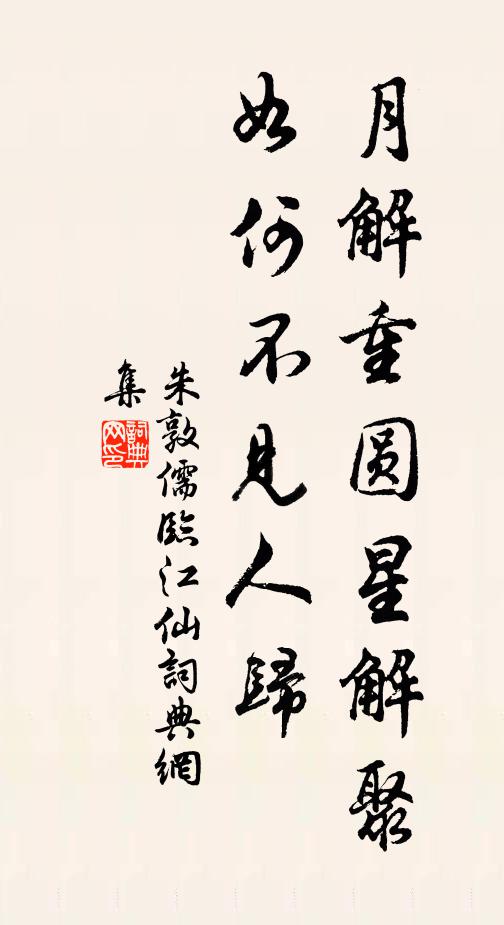 月解重圆星解聚
如何不見人歸
朱敦儒臨江仙詞典網
集
詞典
网印